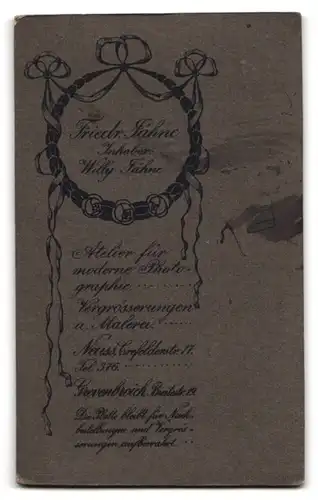 Friedr. Jähne
Inhaber:
Willy Jähne
Atelier für
moderne Photo-
graphie
Vergrösserungen
u. Malerei
Neuss, Crefelderstr. 17.
Tel. 376.
Grevenbroich, Breitestr. 19.
Die Platte bleibt für Nach-
bestellungen und Vergrös-
serungen aufbewahrt.